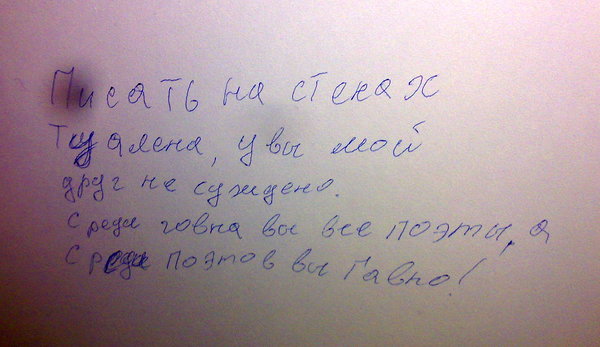 Писать на стенах
Туалена, увы мой
друг не суждено.
Среди говна вы все поэты, а
Среди поэтов вы Гавно!